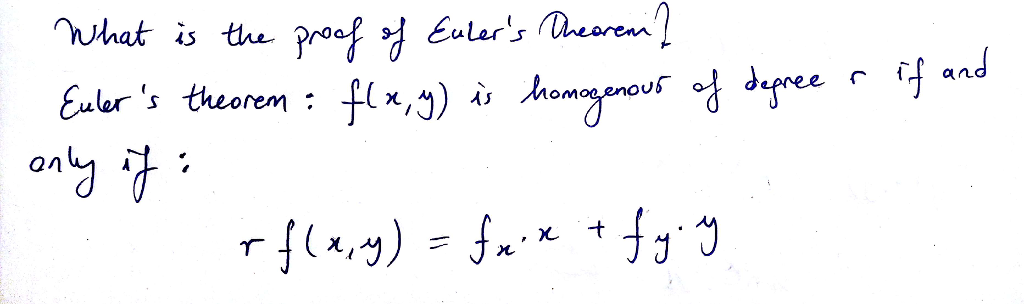 What is the proof of Euler's Theorem?
Euler's theorem : f(x,y) is homogenous of degree r if and
only if :
r f(x,y) = fx·x + fy·y